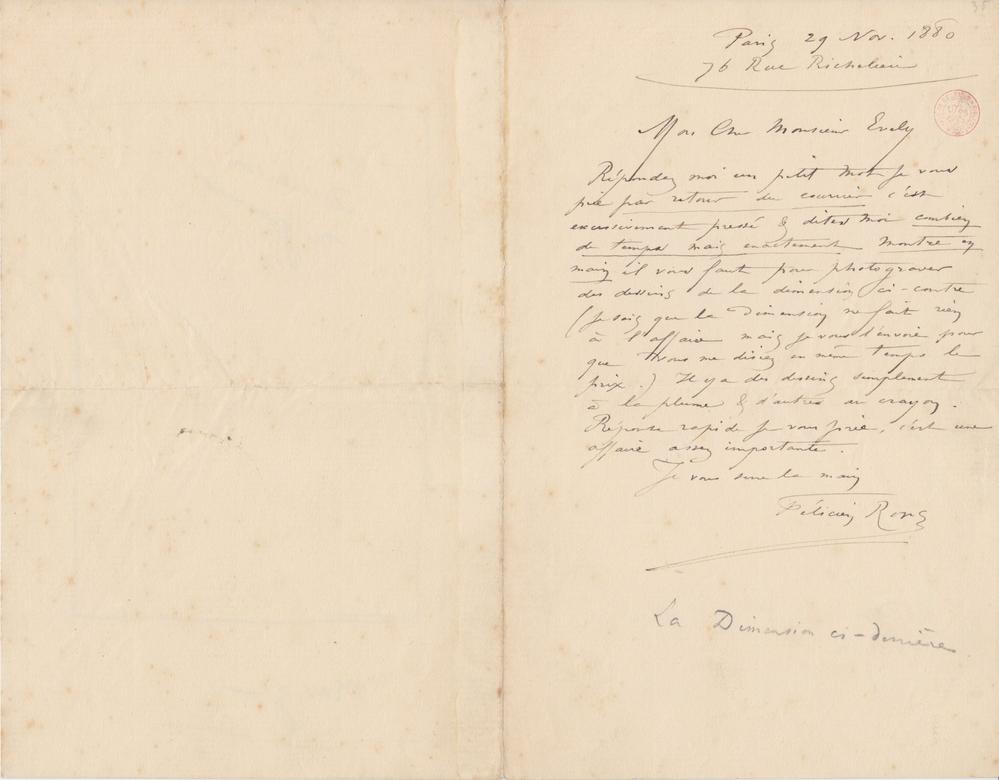 Paris 29 Nov. 1880
76 Rue Richelieu
Mon Cher Monsieur Evely
Répondez moi un petit mot je vous
prie par retour du courrier c'est
excessivement pressé & dites moi combien
de temps mais exactement montre en
main il vous faut pour photograver
des dessins de la dimension ci-contre
(Je sais que la dimension ne fait rien
à l'affaire mais je vous l'envoie pour
que vous me disiez en même temps le
prix.) Il y a des dessins simplement
à la plume & d'autres au crayon.
Réponse rapide je vous prie, c'est une
affaire assez importante.
Je vous serre la main
Félicien Rops
La Dimension ci-derrière